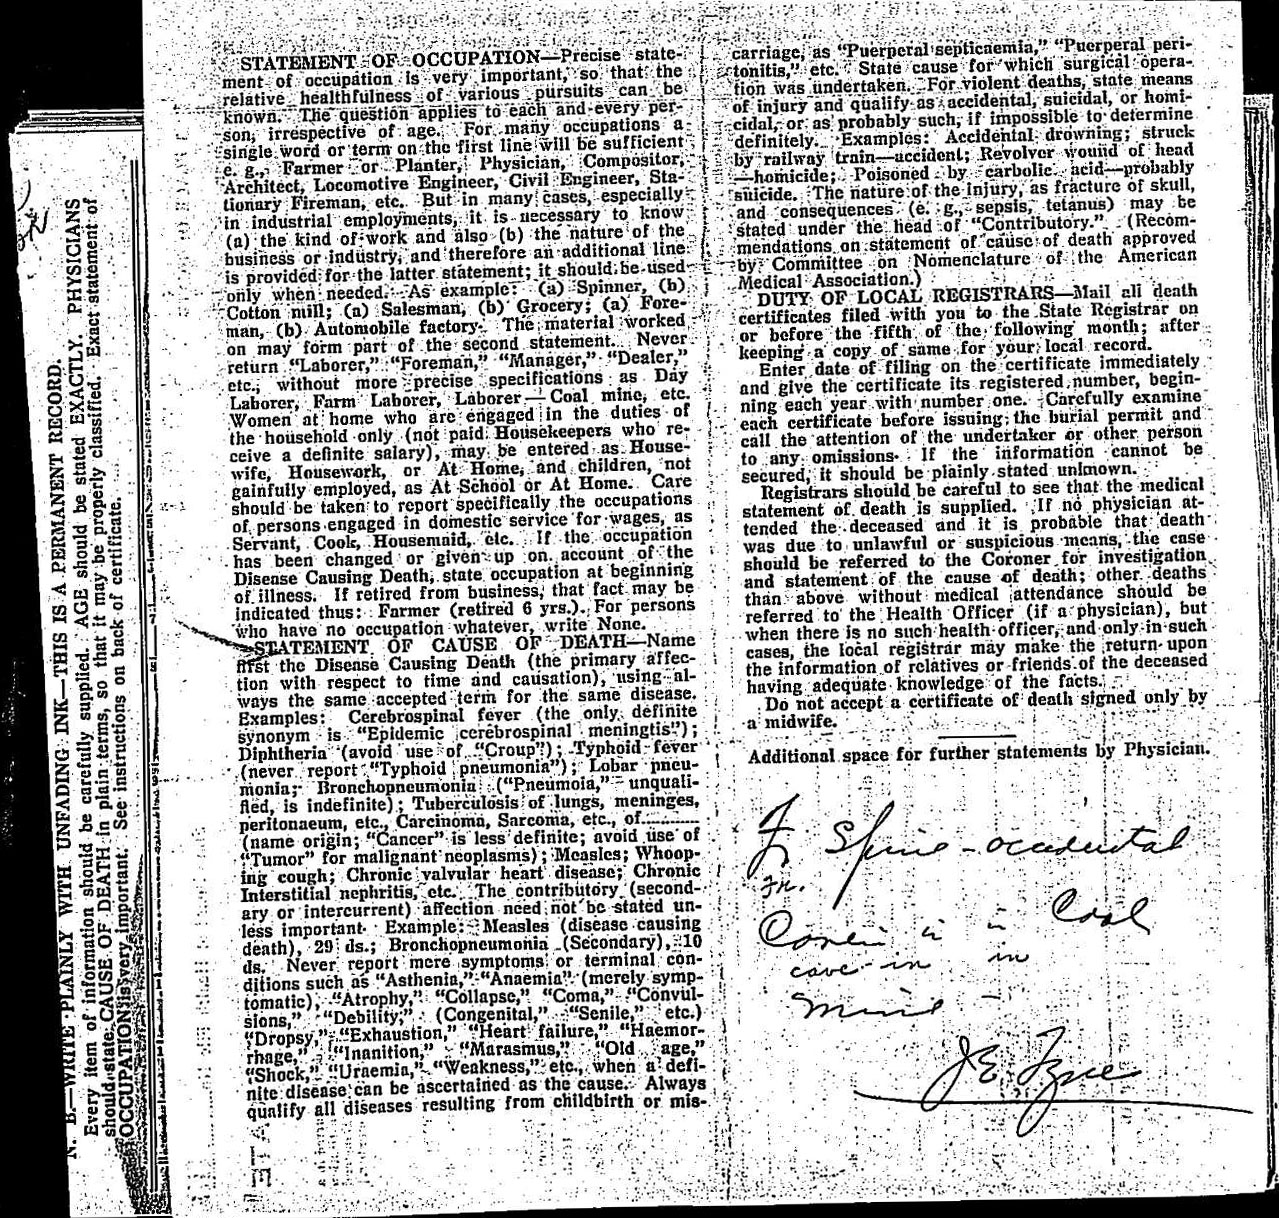 N. B.—WRITE PLAINLY WITH UNFADING INK—THIS IS A PERMANENT RECORD.
Every item of information should be carefully supplied. AGE should be stated EXACTLY. PHYSICIANS
should state CAUSE OF DEATH in plain terms, so that it may be properly classified. Exact statement of
OCCUPATION is very important. See instructions on back of certificate.
STATEMENT OF OCCUPATION—Precise state-
ment of occupation is very important, so that the
relative healthfulness of various pursuits can be
known. The question applies to each and every per-
son, irrespective of age. For many occupations a
single word or term on the first line will be sufficient
e. g., Farmer or Planter, Physician, Compositor,
Architect, Locomotive Engineer, Civil Engineer, Sta-
tionary Fireman, etc. But in many cases, especially
in industrial employments, it is necessary to know
(a) the kind of work and also (b) the nature of the
business or industry, and therefore an additional line
is provided for the latter statement; it should be used
only when needed. As example: (a) Spinner, (b)
Cotton mill; (a) Salesman, (b) Grocery; (a) Fore-
man, (b) Automobile factory. The material worked
on may form part of the second statement. Never
return "Laborer," "Foreman," "Manager," "Dealer,"
etc., without more precise specifications as Day
Laborer, Farm Laborer, Laborer—Coal mine, etc.
Women at home who are engaged in the duties of
the household only (not paid Housekeepers who re-
ceive a definite salary), may be entered as House-
wife, Housework, or At Home, and children, not
gainfully employed, as At School or At Home. Care
should be taken to report specifically the occupations
of persons engaged in domestic service for wages, as
Servant, Cook, Housemaid, etc. If the occupation
has been changed or given up on account of the
Disease Causing Death, state occupation at beginning
of illness. If retired from business, that fact may be
indicated thus: Farmer (retired 6 yrs.). For persons
who have no occupation whatever, write None.
STATEMENT OF CAUSE OF DEATH—Name
first the Disease Causing Death (the primary affec-
tion with respect to time and causation), using al-
ways the same accepted term for the same disease.
Examples: Cerebrospinal fever (the only definite
synonym is "Epidemic cerebrospinal meningtis");
Diphtheria (avoid use of "Croup"); Typhoid fever
(never report "Typhoid pneumonia"); Lobar pneu-
monia; Bronchopneumonia ("Pneumoia," unquali-
fied, is indefinite); Tuberculosis of lungs, meninges,
peritonaeum, etc., Carcinoma, Sarcoma, etc., of..........
(name origin; "Cancer" is less definite; avoid use of
"Tumor" for malignant neoplasms); Measles; Whoop-
ing cough; Chronic valvular heart disease; Chronic
Interstitial nephritis, etc. The contributory (second-
ary or intercurrent) affection need not be stated un-
less important. Example: Measles (disease causing
death), 29 ds.; Bronchopneumonia (Secondary), 10
ds. Never report mere symptoms or terminal con-
ditions such as "Asthenia," "Anaemia" (merely symp-
tomatic), "Atrophy," "Collapse," "Coma," "Convul-
sions," "Debility," (Congenital," "Senile," etc.)
"Dropsy," "Exhaustion," "Heart failure," "Haemor-
rhage," "Inanition," "Marasmus," "Old age,"
"Shock," "Uraemia," "Weakness," etc., when a defi-
nite disease can be ascertained as the cause. Always
qualify all diseases resulting from childbirth or mis-
carriage, as "Puerperal septicaemia," "Puerperal peri-
tonitis," etc. State cause for which surgical opera-
tion was undertaken. For violent deaths, state means
of injury and qualify as accidental, suicidal, or homi-
cidal, or as probably such, if impossible to determine
definitely. Examples: Accidental drowning; struck
by railway train—accident; Revolver wound of head
—homicide; Poisoned by carbolic acid—probably
suicide. The nature of the injury, as fracture of skull,
and consequences (e. g., sepsis, tetanus) may be
stated under the head of "Contributory." (Recom-
mendations on statement of cause of death approved
by Committee on Nomenclature of the American
Medical Association.)
DUTY OF LOCAL REGISTRARS—Mail all death
certificates filed with you to the State Registrar on
or before the fifth of the following month; after
keeping a copy of same for your local record.
Enter date of filing on the certificate immediately
and give the certificate its registered number, begin-
ning each year with number one. Carefully examine
each certificate before issuing the burial permit and
call the attention of the undertaker or other person
to any omissions. If the information cannot be
secured, it should be plainly stated unknown.
Registrars should be careful to see that the medical
statement of death is supplied. If no physician at-
tended the deceased and it is probable that death
was due to unlawful or suspicious means, the case
should be referred to the Coroner for investigation
and statement of the cause of death; other deaths
than above without medical attendance should be
referred to the Health Officer (if a physician), but
when there is no such health officer, and only in such
cases, the local registrar may make the return upon
the information of relatives or friends of the deceased
having adequate knowledge of the facts.
Do not accept a certificate of death signed only by
a midwife.
Additional space for further statements by Physician.
Spine - accidental
in in Coal
cave-in in
Mine